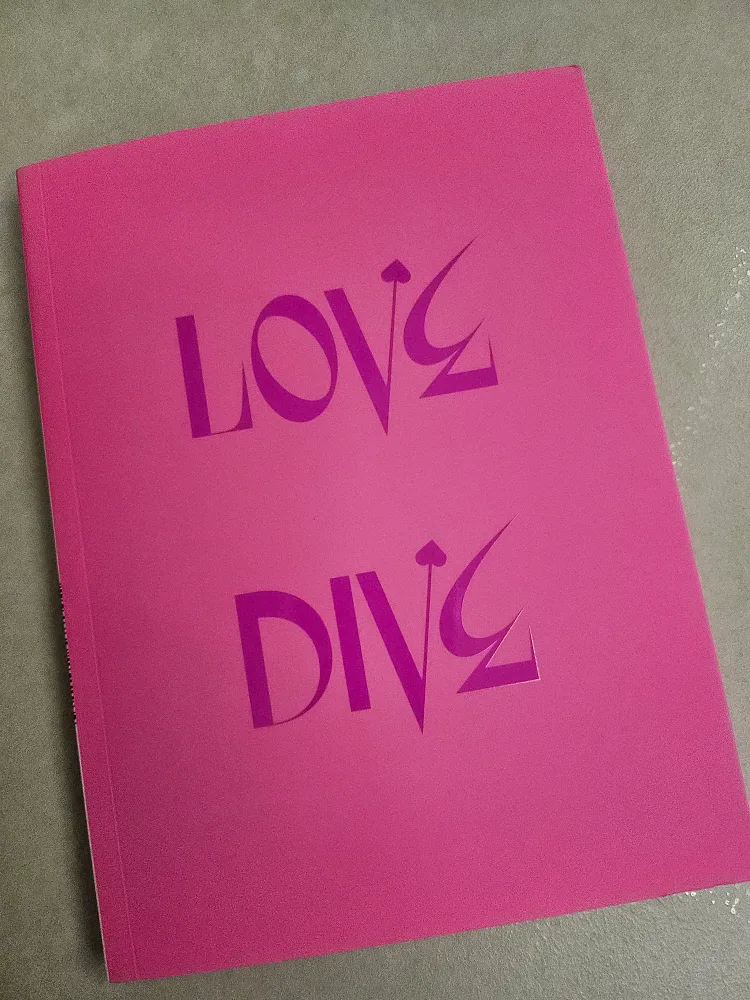 LOVE
DIVE